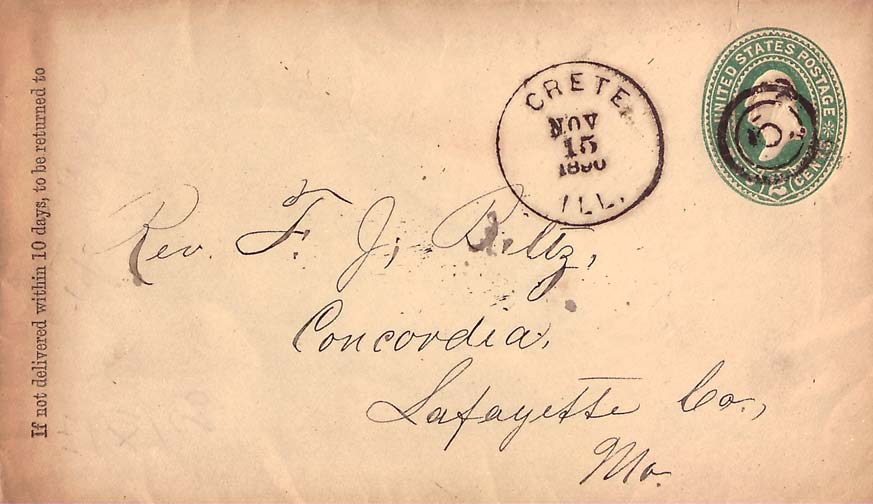 If not delivered within 10 days, to be returned to
CRETE
NOV
15
1890
ILL.
UNITED STATES POSTAGE
2 CENTS
Rev. F. J. Biltz,
Concordia,
Lafayette Co.,
Mo.